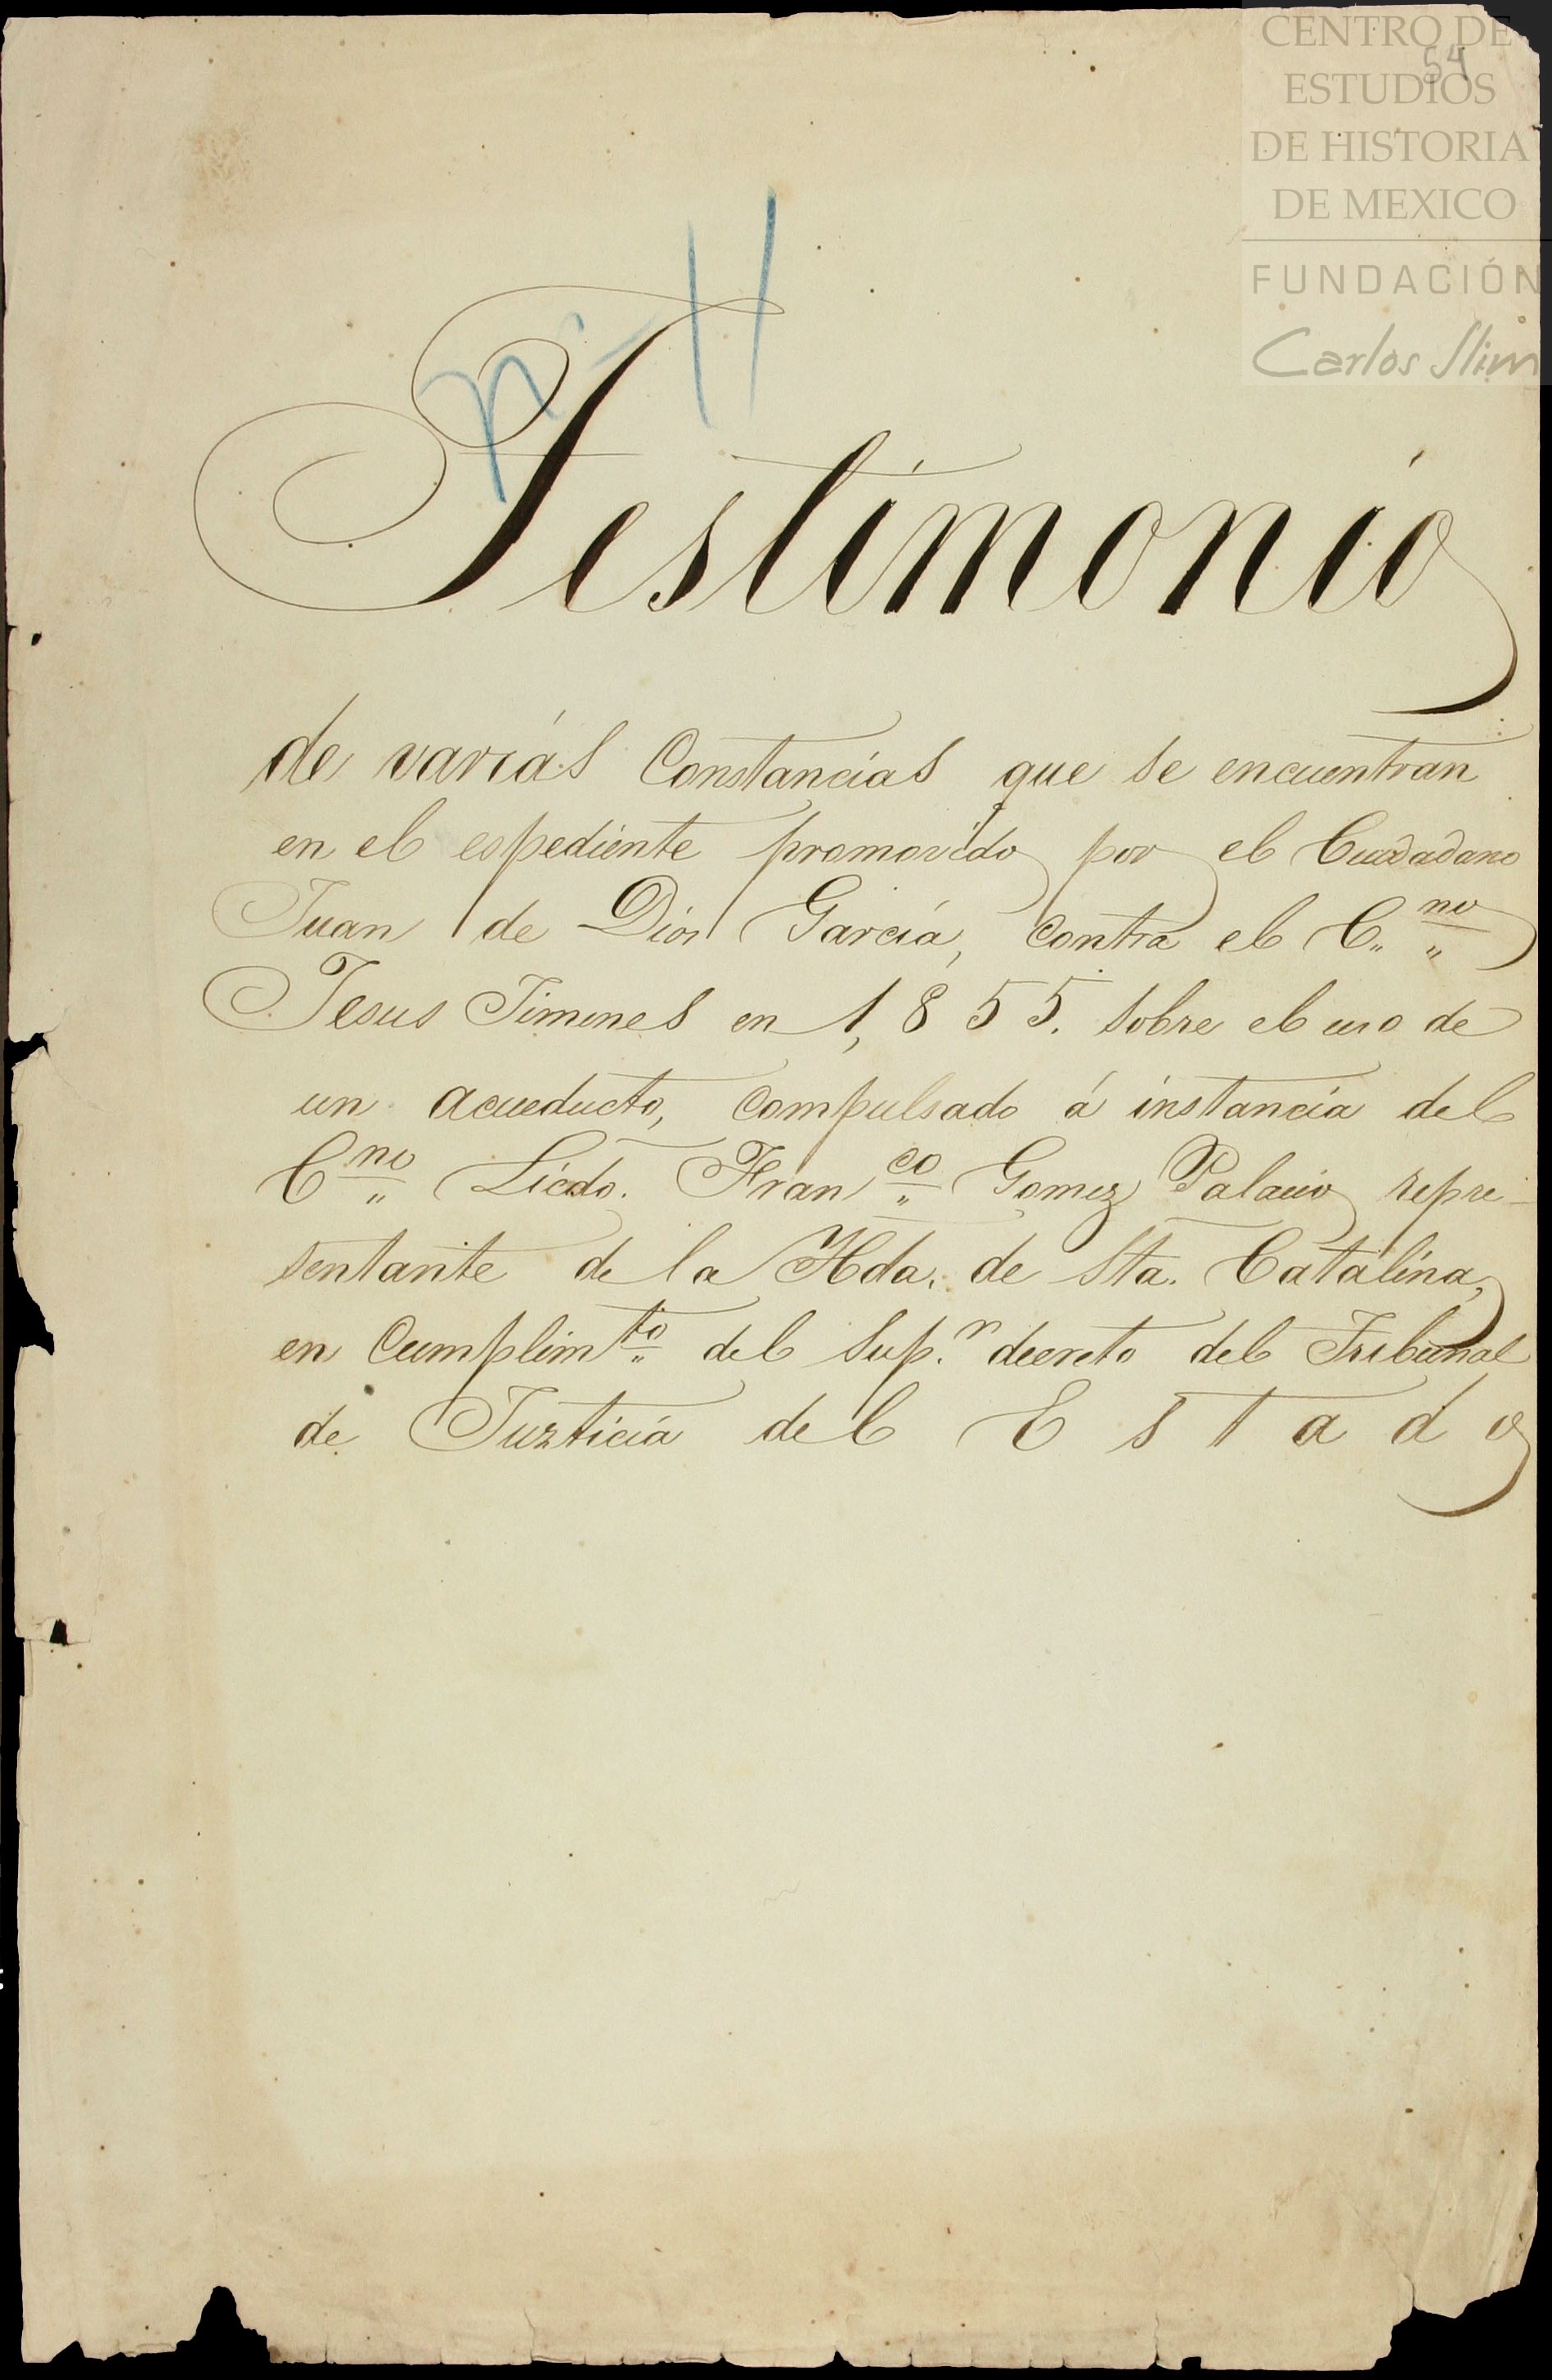 CENTRO DE
54
ESTUDIOS
DE HISTORIA
DE MEXICO
FUNDACIÓN
Carlos Slim
Nº 11
Testimonio
de varias Constancias que se encuentran
en el espediente promovido por el Ciudadano
Juan de Dios García, contra el C.ⁿᵒ
Jesus Jimenes en 1,855. sobre el uso de
un acueducto, compulsado á instancia del
Cⁿᵒ Licdo. Franᶜᵒ Gomez Palacio repre-
sentante de la Hda. de Sta. Catalina,
en Cumplimᵗᵒ del Sup.ʳ decreto del Tribunal
de Justicia del Estado